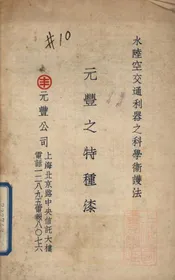 水陸空交通利器之科學衛護法
元豐之特種漆
#10
元豐公司
上海北京路中央信託大樓
電話一二八九五電報八〇七六